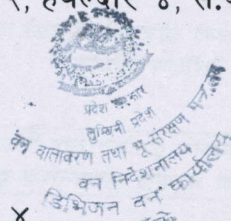 हवल्दार ४,
प्रदेश सरकार
लुम्बिनी प्रदेश
वन वातावरण तथा भू-संरक्षण मन्त्रालय
वन निर्देशनालय
डिभिजन वन कार्यालय